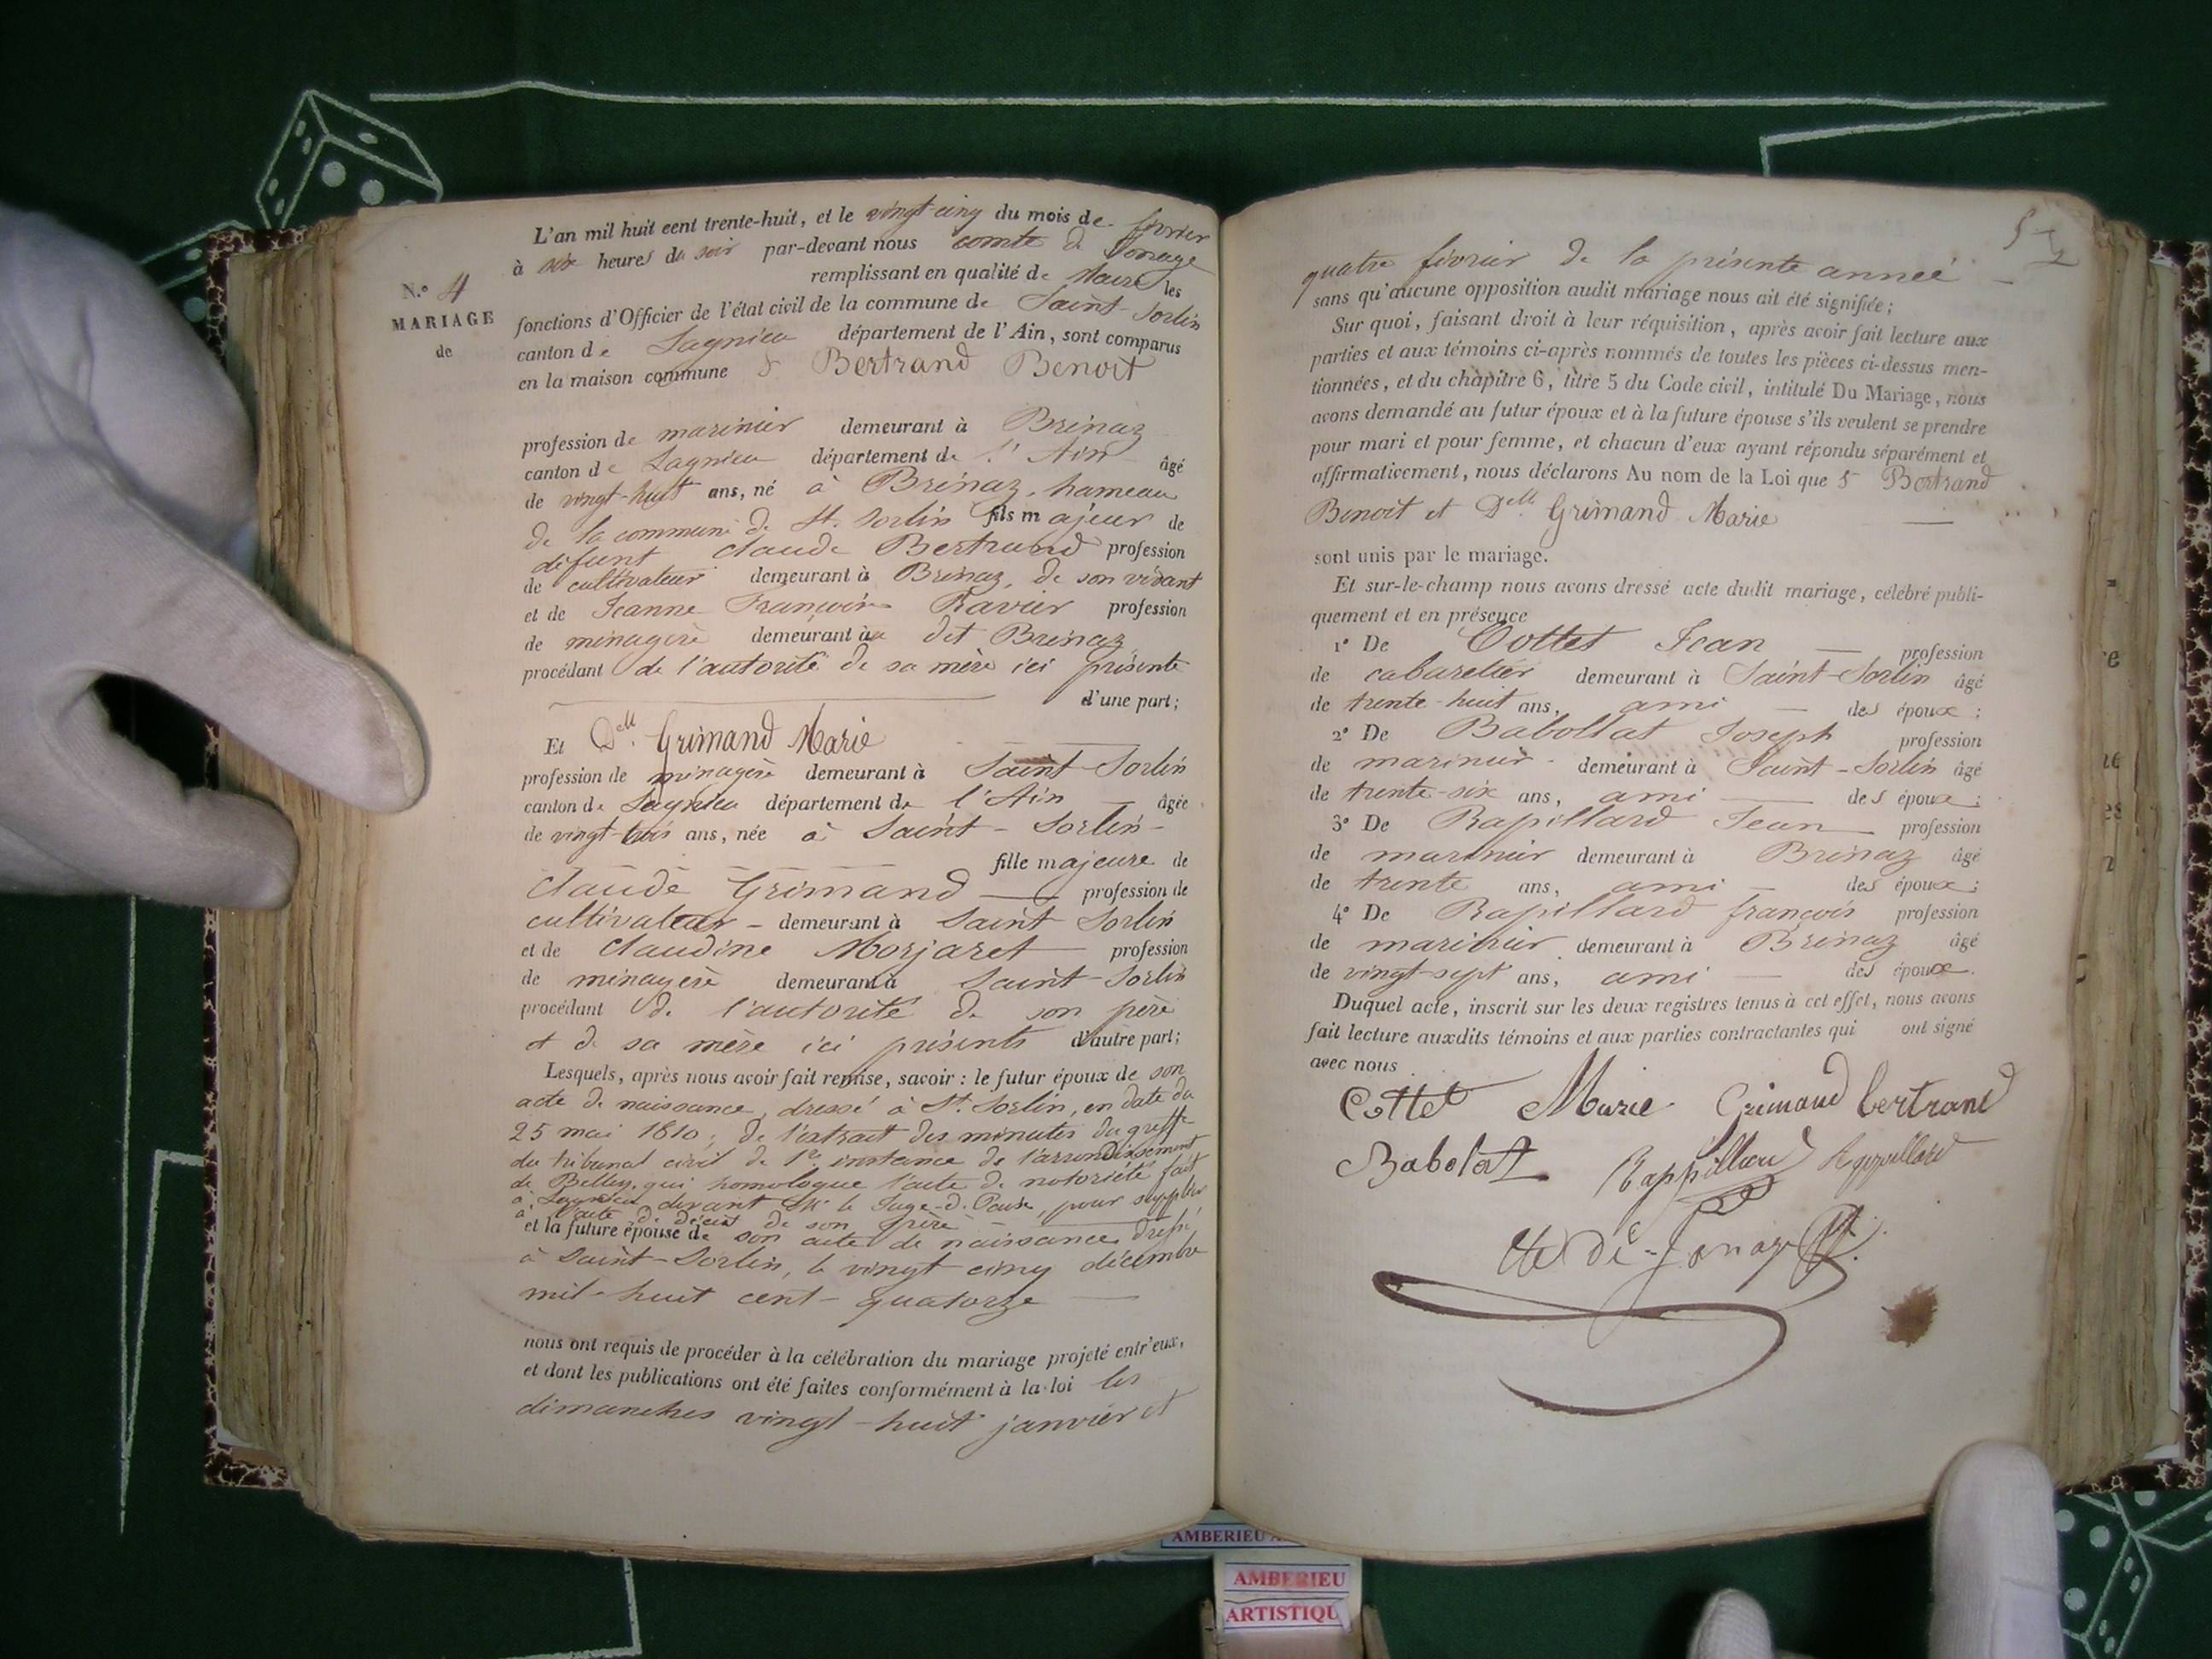 L'an mil huit cent trente-huit, et le vingt-cinq du mois de février
à six heures du soir par-devant nous comte d Jonage
remplissant en qualité de Maire les
N.º 4
MARIAGE
de
fonctions d'Officier de l'état civil de la commune de Saint-Sorlin
canton de Lagnieu département de l'Ain, sont comparus
en la maison commune S Bertrand Benoit
profession de marinier demeurant à Brénaz
canton de Lagnieu département de l'Ain âgé
de vingt-huit ans, né à Brénaz, hameau
de la commune de St. Sorlin fils majeur de
défunt Claude Bertrand profession
de cultivateur demeurant à Brénaz, de son vivant
et de Jeanne Françoise Ravier profession
de ménagère demeurant au dit Brénaz
procédant de l'autorité de sa mère ici présente
d'une part;
Et Delle. Grimand Marie
profession de ménagère demeurant à Saint-Sorlin
canton de Lagnieu département de l'Ain âgée
de vingt-trois ans, née à Saint-Sorlin-
fille majeure de
Claude Grimand profession de
cultivateur - demeurant à Saint Sorlin
et de Claudine Morjaret profession
de ménagère demeurant à Saint-Sorlin
procédant de l'autorité de son père
et de sa mère ici présents d'autre part;
Lesquels, après nous avoir fait remise, savoir : le futur époux de son
acte de naissance, dressé à St. Sorlin, en date du
25 mai 1810; de l'extrait des minutes du greffe
du tribunal civil de 1re instance de l'arrondissement
de Belley, qui homologue l'acte de notoriété fait
à Lagnieu devant Mr le Juge-d. Paix, pour suppléer
à l'acte de décès de son père
et la future épouse de son acte de naissance dressé
à Saint-Sorlin, le vingt cinq décembre
mil-huit cent-quatorze
nous ont requis de procéder à la célébration du mariage projeté entr'eux,
et dont les publications ont été faites conformément à la loi les
dimanches vingt-huit janvier et
quatre février de la présente année
sans qu'aucune opposition audit mariage nous ait été signifiée;
Sur quoi, faisant droit à leur réquisition, après avoir fait lecture aux
parties et aux témoins ci-après nommés de toutes les pièces ci-dessus men-
tionnées, et du chapitre 6, titre 5 du Code civil, intitulé Du Mariage, nous
avons demandé au futur époux et à la future épouse s'ils veulent se prendre
pour mari et pour femme, et chacun d'eux ayant répondu séparément et
affirmativement, nous déclarons Au nom de la Loi que S Bertrand
Benoit et Delle Grimand Marie
sont unis par le mariage.
Et sur-le-champ nous avons dressé acte dudit mariage, célébré publi-
quement et en présence
1º De Cottet Jean profession
de cabaretier demeurant à Saint-Sorlin âgé
de trente-huit ans, ami des époux;
2º De Babollat Joseph profession
de marinier demeurant à Saint-Sorlin âgé
de trente-six ans, ami des époux;
3º De Rapillard Jean profession
de marinier demeurant à Brénaz âgé
de trente ans, ami des époux;
4º De Rapillard françois profession
de marinier demeurant à Brénaz âgé
de vingt-sept ans, ami des époux.
Duquel acte, inscrit sur les deux registres tenus à cet effet, nous avons
fait lecture auxdits témoins et aux parties contractantes qui ont signé
avec nous
Cottet Marie Grimand bertrand
Babolat Rappillard Rappillard
Cte De-Jonage
AMBERIEU
AMBERIEU
ARTISTIQU